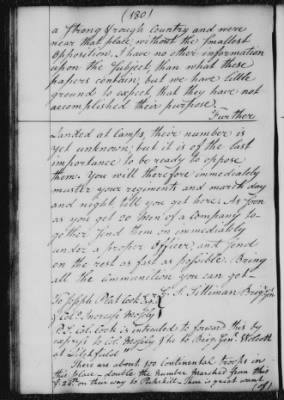 (180)
a strong & rough country and were
near that place, without the smallest
opposition. I have no other information
upon the subject, than what these
papers contain; but we have little
ground to expect, that they have not
accomplished their purpose.
Further
Landed at Camps, their number is
yet unknown; but it is of the last
importance to be ready to oppose
them. You will therefore immediately
muster your regiments and march day
and night till you get here. As soon
as you get 20 men of a Company to-
gether send them on immediately
under a proper Officer, and send
on the rest as fast as possible. Bring
all the ammunition you can get
G. S. Silliman Brig. Gen
To Joseph Plat Cook Esq
& Col. Increase Mosely
P.S. Col. Cook is intruded to forward this by
express to Col. Mosely & he to Brig. Gen.
at Litchfield
There are about 500 Continental troops in
this place - double the number marched from this
on their way to Peekskill. There is great want